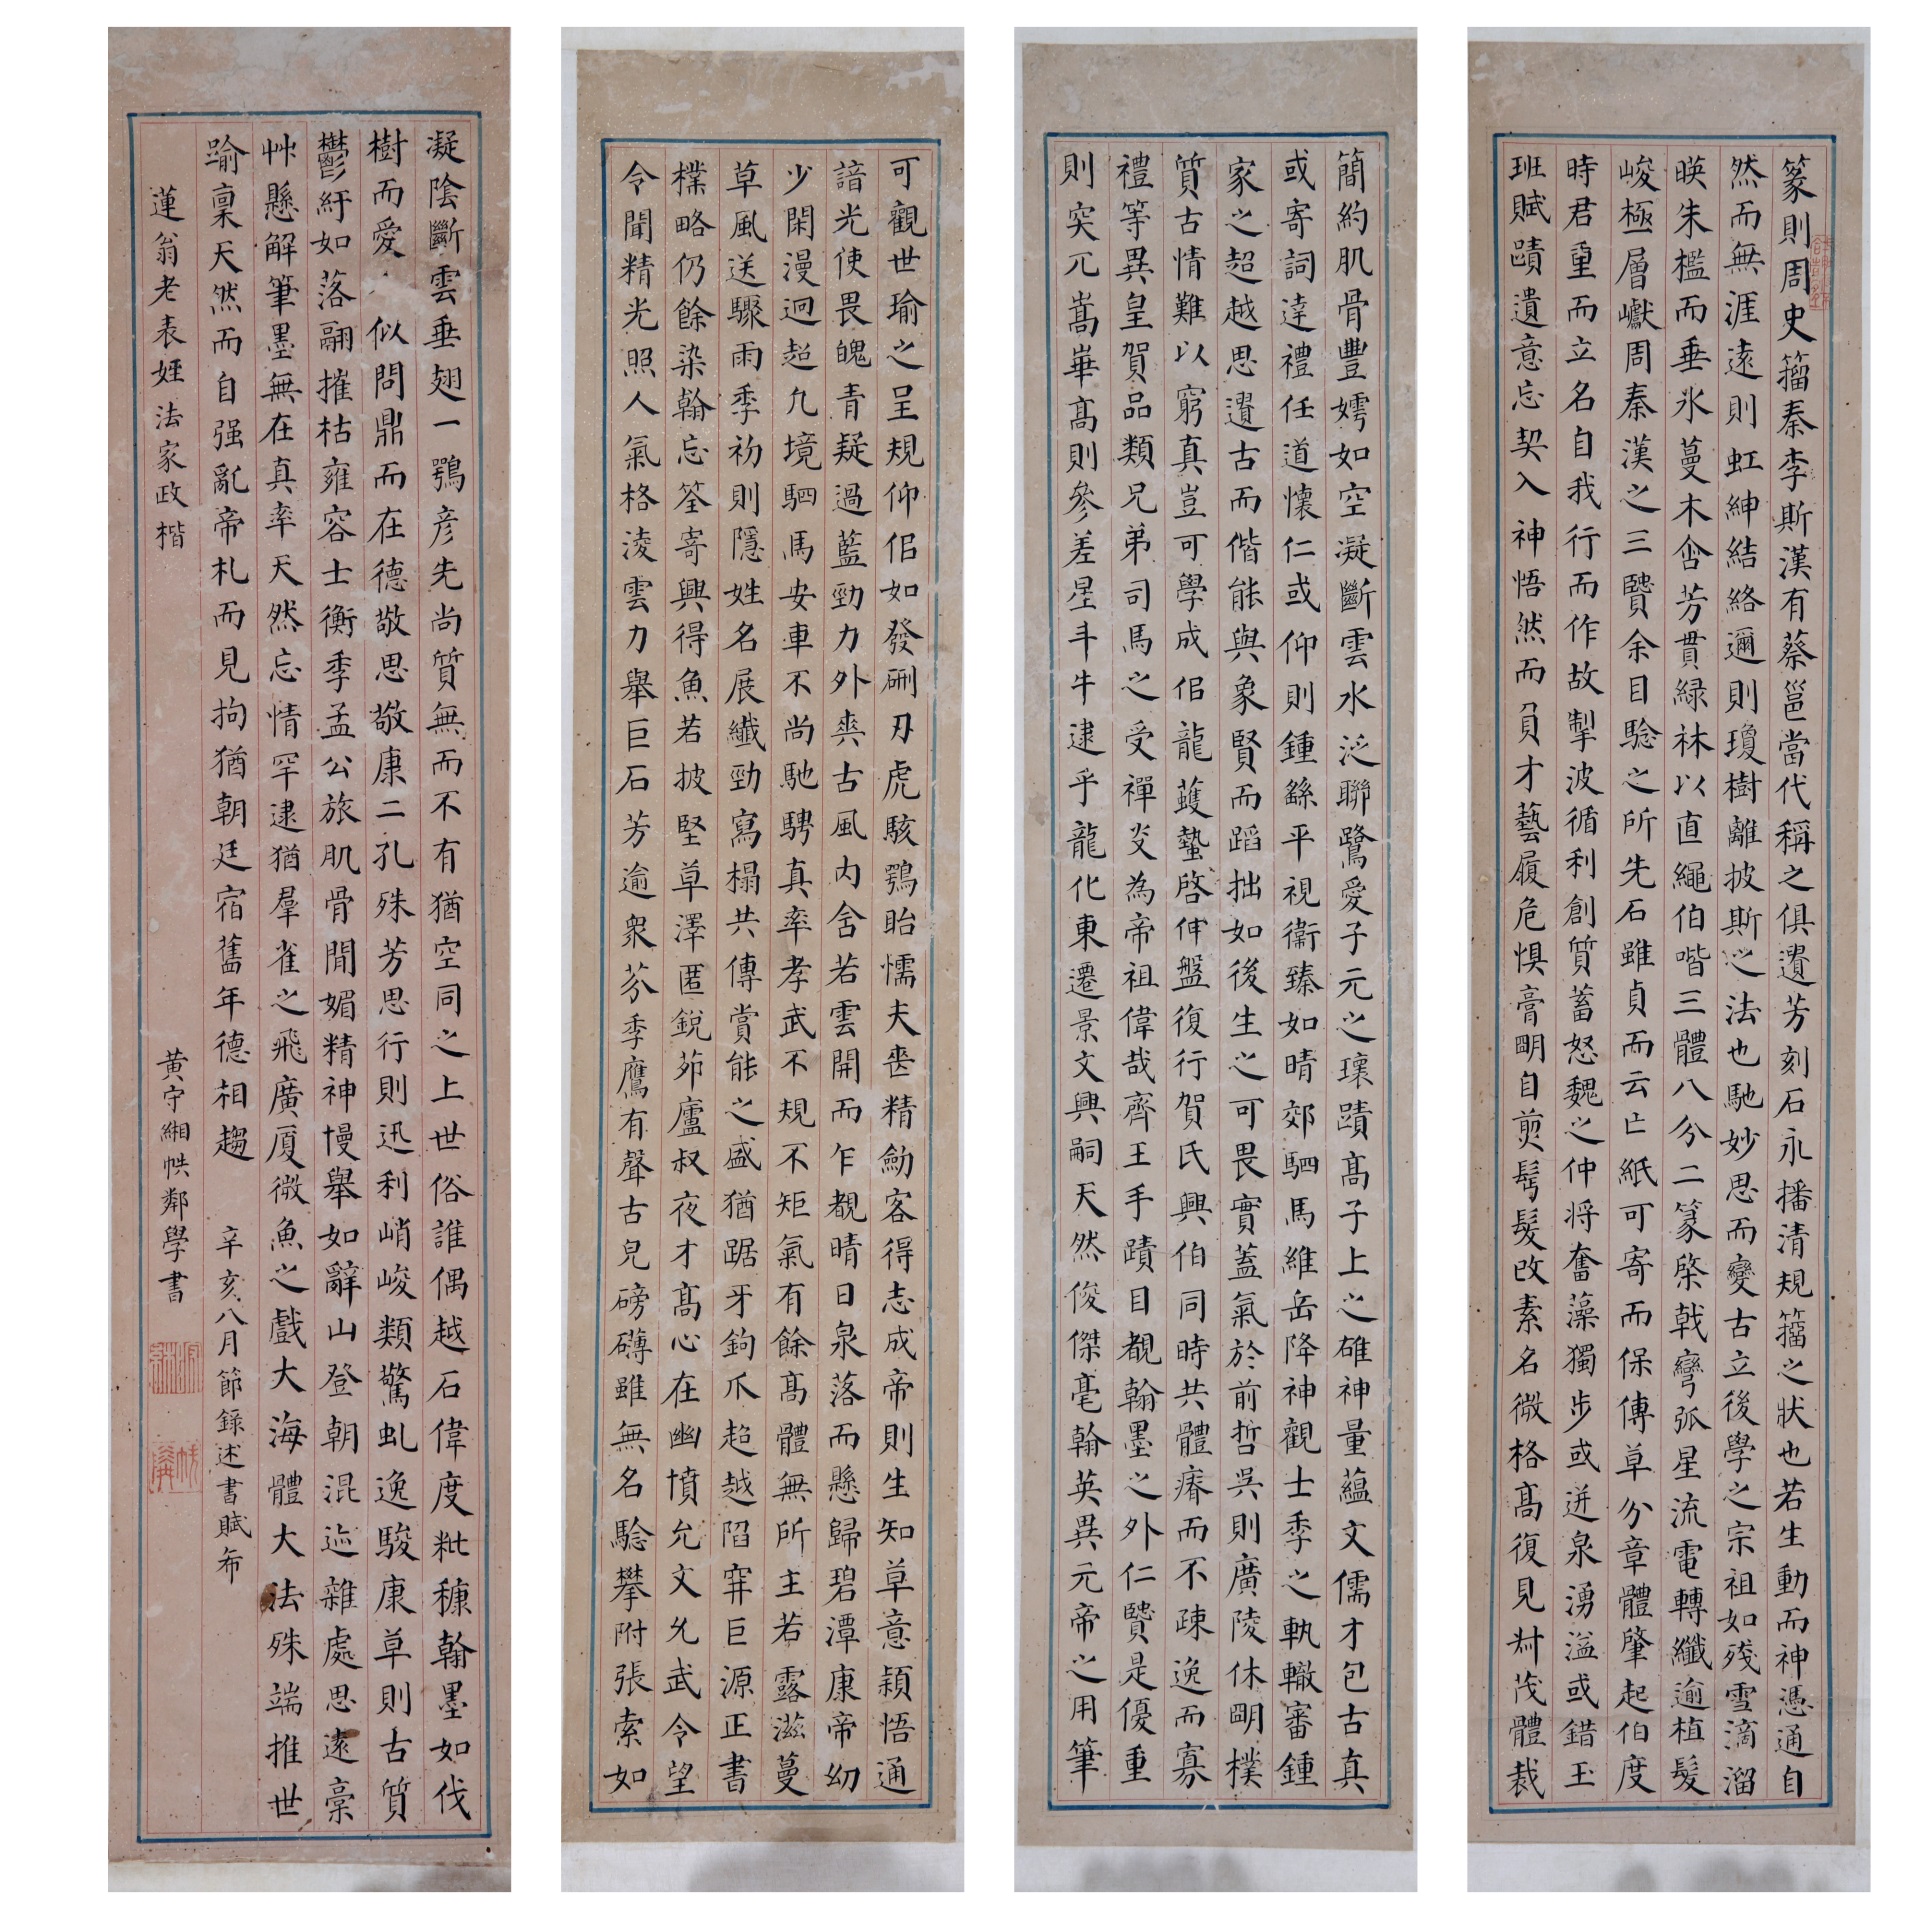 篆則周史籀秦李斯漢有蔡邕當代稱之俱遺芳刻石永播清規籀之狀也若生動而神憑通自
然而無涯遠則虹紳結絡邇則瓊樹離披斯之法也馳妙思而變古立後學之宗祖如殘雪滴溜
暎朱檻而垂氷蔓木含芳貫綠林以直繩伯喈三體八分二篆棨戟彎弧星流電轉纖逾植髮
峻極層巘周秦漢之三賢余目驗之所先石雖貞而云亡紙可寄而保傳草分章體肇起伯度
時君重而立名自我行而作故掣波循利創質蓄怒魏之仲将奮藻獨步或迸泉湧溢或錯玉
班賦蹟遺意忘契入神悟然而負才藝履危惧膏明自煎髩髮改素名微格高復見叔茂體裁
簡約肌骨豐嫮如空凝斷雲水泛聯鷺愛子元之瓌蹟高子上之碓神量蘊文儒才包古真
或寄詞達禮任道懷仁或仰則鍾繇平視衛臻如晴郊駟馬維岳降神觀士季之軌轍審鍾
家之超越思遺古而偕能與象賢而蹈拙如後生之可畏實蓋氣於前哲吳則廣陵休明樸
質古情難以窮真豈可學成佀龍蠖蟄啓伸盤復行賀氏興伯同時共體瘠而不疎逸而寡
禮等異皇賀品類兄弟司馬之受禪炎為帝祖偉哉齊王手蹟目覩翰墨之外仁賢是優重
則突兀嵩華高則參差星斗牛逮乎龍化東遷景文興嗣天然俊傑毫翰英異元帝之用筆
可觀世瑜之呈規仰佀如發硎刃虎駭鶚眙懦夫喪精劒客得志成帝則生知草意穎悟通
諳光使畏魄青疑過藍勁力外爽古風內舍若雲開而乍覩晴日泉落而懸歸碧潭康帝幼
少閑漫迥超凡境駟馬安車不尚馳騁真率孝武不規不矩氣有餘高體無所主若露滋蔓
草風送驟雨季初則隱姓名展纖勁寫榻共傳賞能之盛猶踞牙鉤爪超越陷穽巨源正書
檏略仍餘染翰忘筌寄興得魚若披堅草澤匿銳茆廬叔夜才高心在幽憤允文允武令望
令聞精光照人氣格淩雲力舉巨石芳逾衆芬季鷹有聲古皃磅礴雖無名驗攀附張索如
凝陰斷雲垂翅一鶚彥先尚質無而不有猶空同之上世俗誰偶越石偉度粃穅翰墨如伐
樹而愛似問鼎而在德敬思敬康二孔殊芳思行則迅利峭峻類驚虬逸駿康草則古質
鬱紆如落翮摧枯雍容士衡季孟公旅肌骨閒媚精神慢舉如辭山登朝混迹雜處思遠稾
艸懸解筆墨無在真率天然忘情罕逮猶羣雀之飛廣厦微魚之戲大海體大法殊端推世
踰稟天然而自强亂帝札而見拘猶朝廷宿舊年德相趨 辛亥八月節錄述書賦布
蓮翁老表姪法家政楷 黃守緗帙鄰學書